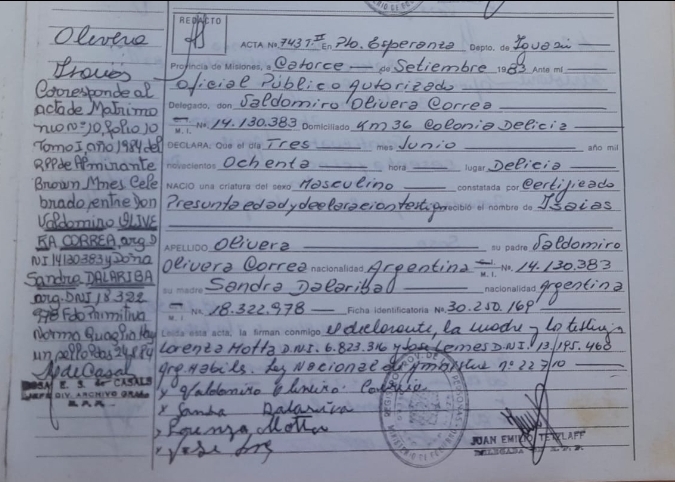 Olivera
Isaías
Corresponde al
acta de Matrimo
nio nº 10, folio 10
Tomo I, año 1984 del
RPP de Almirante
Brown Mnes Cele
brado, entre don
Valdomiro OLIVE
RA CORREA, arg. D
NI 14130383 y Doña
Sandra DALARIBA
arg. DNI 18.322
978 Fdo
Norma
un sello
de Casal
E. S. de CASALS
JEFE DIV. ARCHIVO GRAL.
R. P. P.
REDACTO
ACTA Nº 7437. II En Pto. Esperanza Depto. de Iguazú
Provincia de Misiones, a Catorce de Setiembre 1983 Ante mi
Oficial Público Autorizado
Delegado, don Valdomiro Olivera Correa
M. I. Nº 14.130.383 Domiciliado Km 36 Colonia Delicia
DECLARA: Que el día Tres mes Junio año mil
novecientos Ochenta hora lugar Delicia
NACIO una criatura del sexo Masculino constatada por Certificado
Presunta edad y declaracion testigo recibió el nombre de Isaías
APELLIDO Olivera su padre Valdomiro
Olivera Correa nacionalidad Argentina M. I. Nº 14.130.383
su madre Sandra Dalariba nacionalidad argentina
M. I. Nº 18.322.978 Ficha identificatoria Nº 30.250.169
Leída esta acta, la firman conmigo el declarante, la madre y los testigos
Lorenza Motta D.N.I. 6.823.316 y José Lemes D.N.I. 13.195.460
arg. Habils. Ley Nacional de Amnistia nº 22.710
x Valdomiro Olivera Correia
x Sandra Dalariva
x Lorenza Motta
x Jose
JUAN EMILIO TETZLAFF